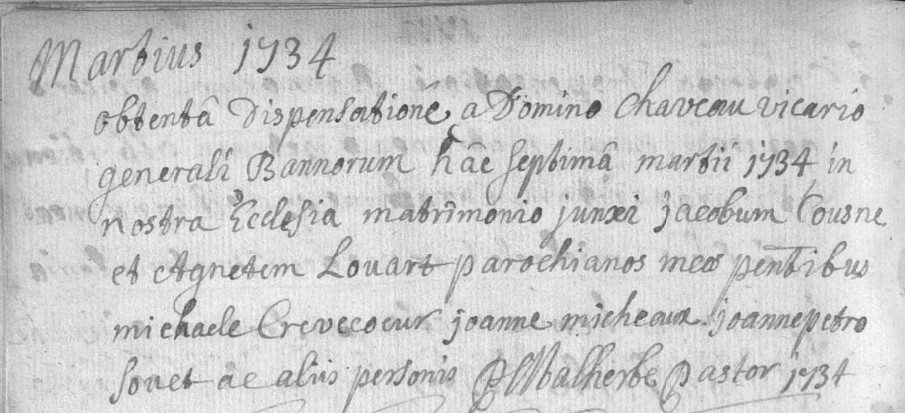 Martius 1734
obtentâ Dispensatione a Domino Chaveau vicario
generali Bannorum hâc septimâ martii 1734 in
nostra Ecclesia matrimonio junxi jacobum Cousne
et Agnetem Lovart parochianos meos pentibus
michaele Crevecoeur joanne micheaux joannepetro
Sovet ac aliis personis Malherbe Pastor 1734